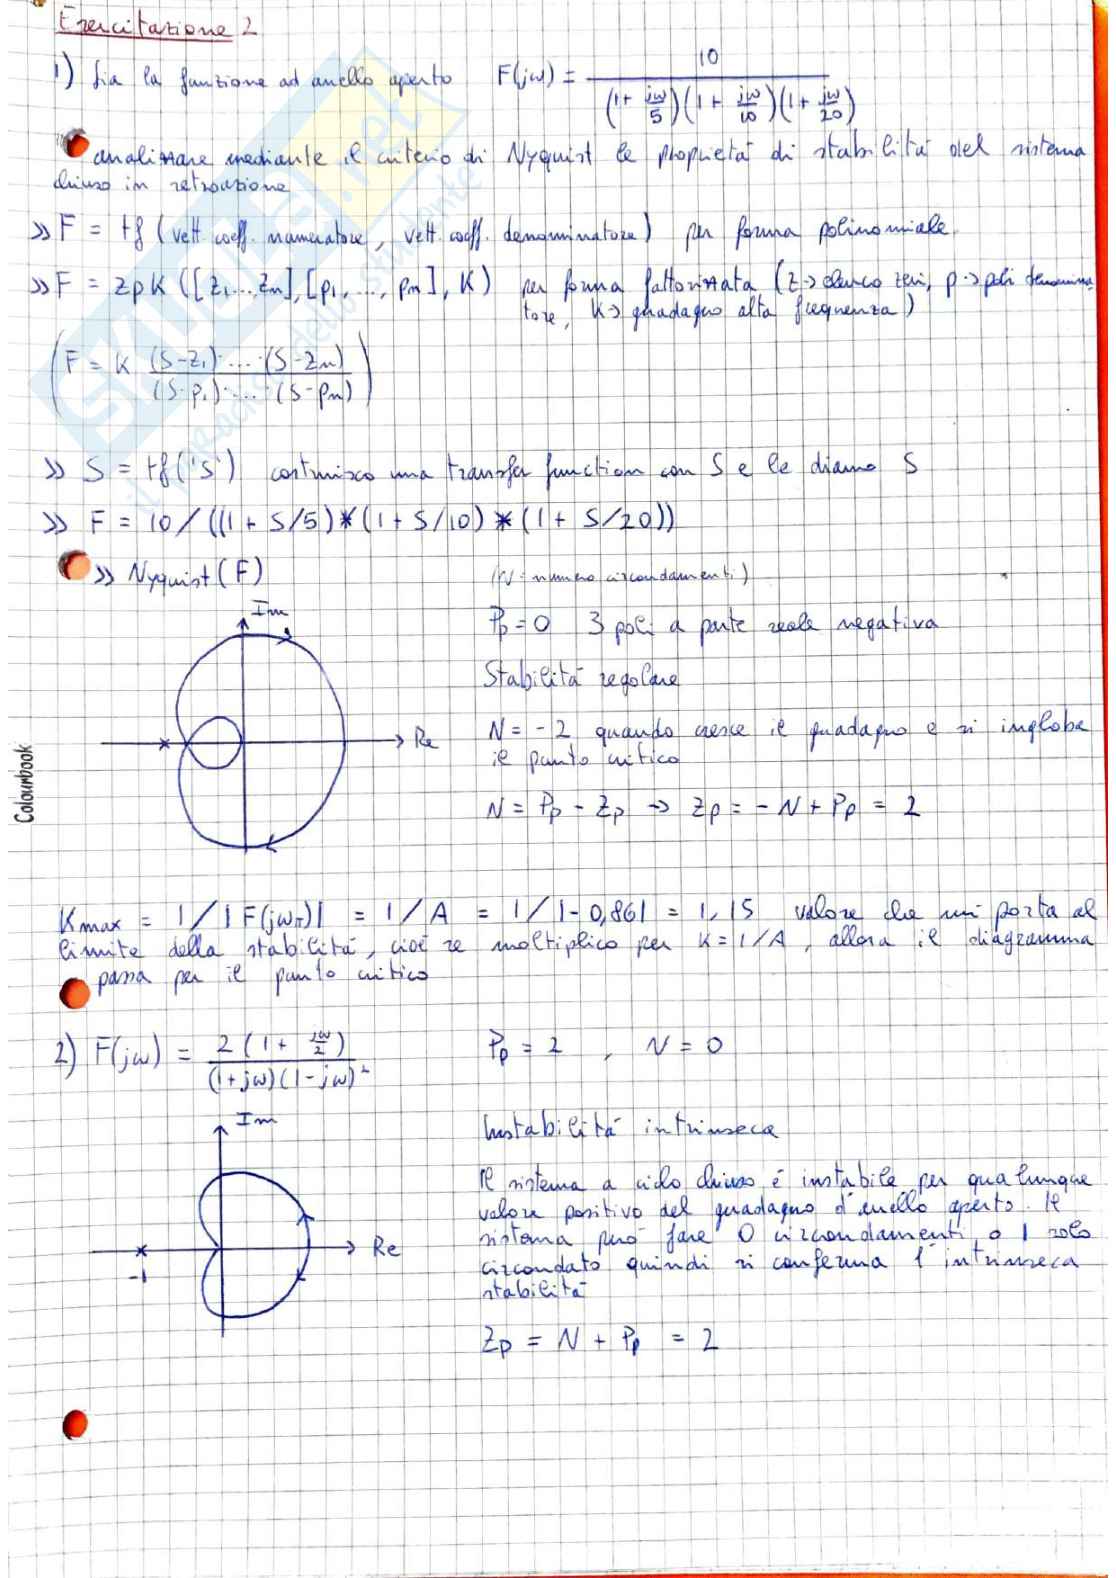 Esercitazione 2
1) Sia la funzione ad anello aperto F(jω) = 10 / (1 + jω/5)(1 + jω/10)(1 + jω/20)
analizzare mediante il criterio di Nyquist le proprietà di stabilità del sistema
chiuso in retroazione
>> F = tf (vett. coeff. numeratore, vett. coeff. denominatore) per forma polinomiale
>> F = zpk ([z1...,zn],[p1,...,pn], K) per forma fattorizzata (z-> elenco zeri, p->poli denomina
tore, K-> guadagno alta frequenza)
(F = K (S-z1)·...·(S-zm) / (S-p1)·...·(S-pm))
>> S = tf('s') costruisco una transfer function con S e le diamo S
>> F = 10/((1 + S/5)*(1 + S/10)*(1 + S/20))
>> Nyquist(F) (N = numero circondamenti)
Im
Re
Pp = 0 3 poli a parte reale negativa
Stabilità regolare
N = -2 quando cresce il guadagno e si ingloba
il punto critico
N = Pp - Zp -> Zp = -N + Pp = 2
Kmax = 1/|F(jωπ)| = 1/A = 1/|-0,86| = 1,15 valore che mi porta al
limite della stabilità, cioè se moltiplico per K = 1/A, allora il diagramma
passa per il punto critico
2) F(jω) = 2(1 + jω/2) / (1+jω)(1-jω)² Pp = 2 , N = 0
Im
Re
-1
Instabilità intrinseca
Il sistema a ciclo chiuso è instabile per qualunque
valore positivo del guadagno d'anello aperto. Il
sistema può fare 0 circondamenti o 1 solo
circondato quindi si conferma l'intrinseca
stabilità
Zp = N + Pp = 2
Colourbook
SKUOLA.net
il paradiso dello studente